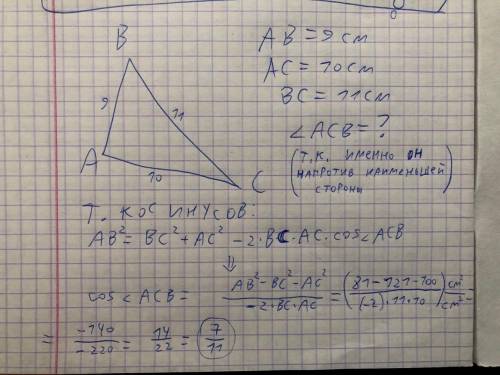 B
AB = 9 см
AC = 10 см
BC = 11 см
9
11
∠ACB = ?
A
10
C
(т.к. именно он
напротив наименьшей
стороны)
Т. косинусов:
AB² = BC² + AC² - 2·BC·AC·cos∠ACB
⇓
cos∠ACB = (AB² - BC² - AC²)/(-2·BC·AC) = ((81-121-100)/((-2)·11·10)) см²/см² =
= -140/-220 = 14/22 = 7/11